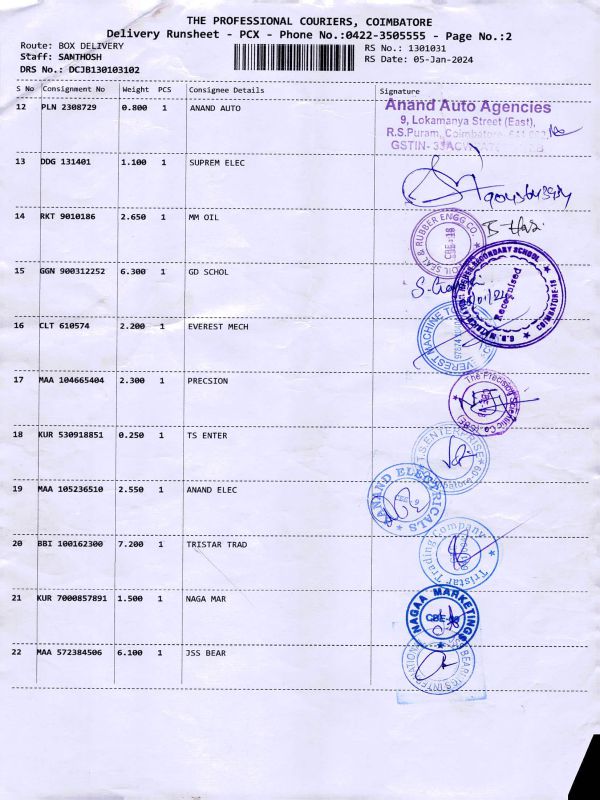 THE PROFESSIONAL COURIERS, COIMBATORE
Delivery Runsheet - PCX - Phone No.:0422-3505555 - Page No.:2
Route: BOX DELIVERY
Staff: SANTHOSH
DRS No.: DCJB130103102
RS No.: 1301031
RS Date: 05-Jan-2024
S No Consignment No Weight PCS Consignee Details Signature
12 PLN 2308729 0.800 1 ANAND AUTO
Anand Auto Agencies
9, Lokamanya Street (East),
R.S.Puram, Coimbatore
GSTIN-
13 DDG 131401 1.100 1 SUPREM ELEC
14 RKT 9010186 2.650 1 MM OIL
OIL SEAL & RUBBER ENGG CO.
CBE-18
15 GGN 900312252 6.300 1 GD SCHOL
SECONDARY SCHOOL
COIMBATORE
Recognised
16 CLT 610574 2.200 1 EVEREST MECH
VEREST MACHINE
17 MAA 104665404 2.300 1 PRECSION
The Precision Scientific Co.
18 KUR 530918851 0.250 1 TS ENTER
T.S ENTERPRISE
19 MAA 105236510 2.550 1 ANAND ELEC
ANAND ELECTRICALS
20 BBI 100162300 7.200 1 TRISTAR TRAD
Tristar Trading Company
21 KUR 7000857891 1.500 1 NAGA MAR
NAGAA MARKETINGS
22 MAA 572384506 6.100 1 JSS BEAR
BEARINGS INTERNATIONAL